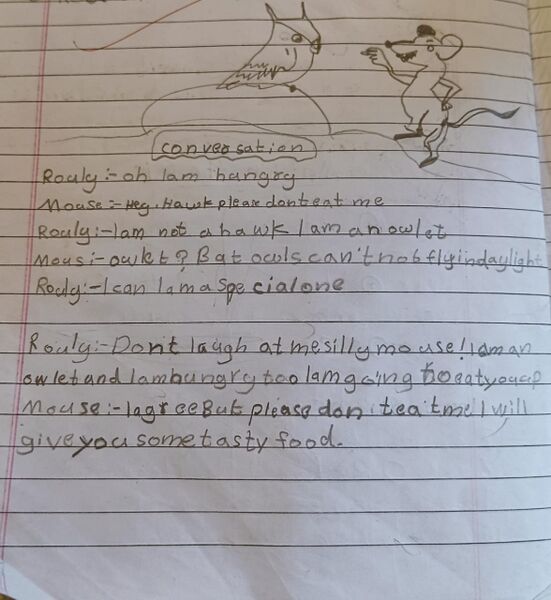 conversation
Rouly:- oh I am hungry
Mouse:- Hey. Hawk please dont eat me
Rouly:- I am not a hawk I am an owlet
Mous:- owlet? Bat owls can't not fly in daylight
Rouly:- I can I am a special one
Rouly:- Don't laugh at me silly mouse! I am an
owlet and I am hungry too I am going to eat you up
Mouse:- I agree But please don t eat me I will
give you some tasty food.